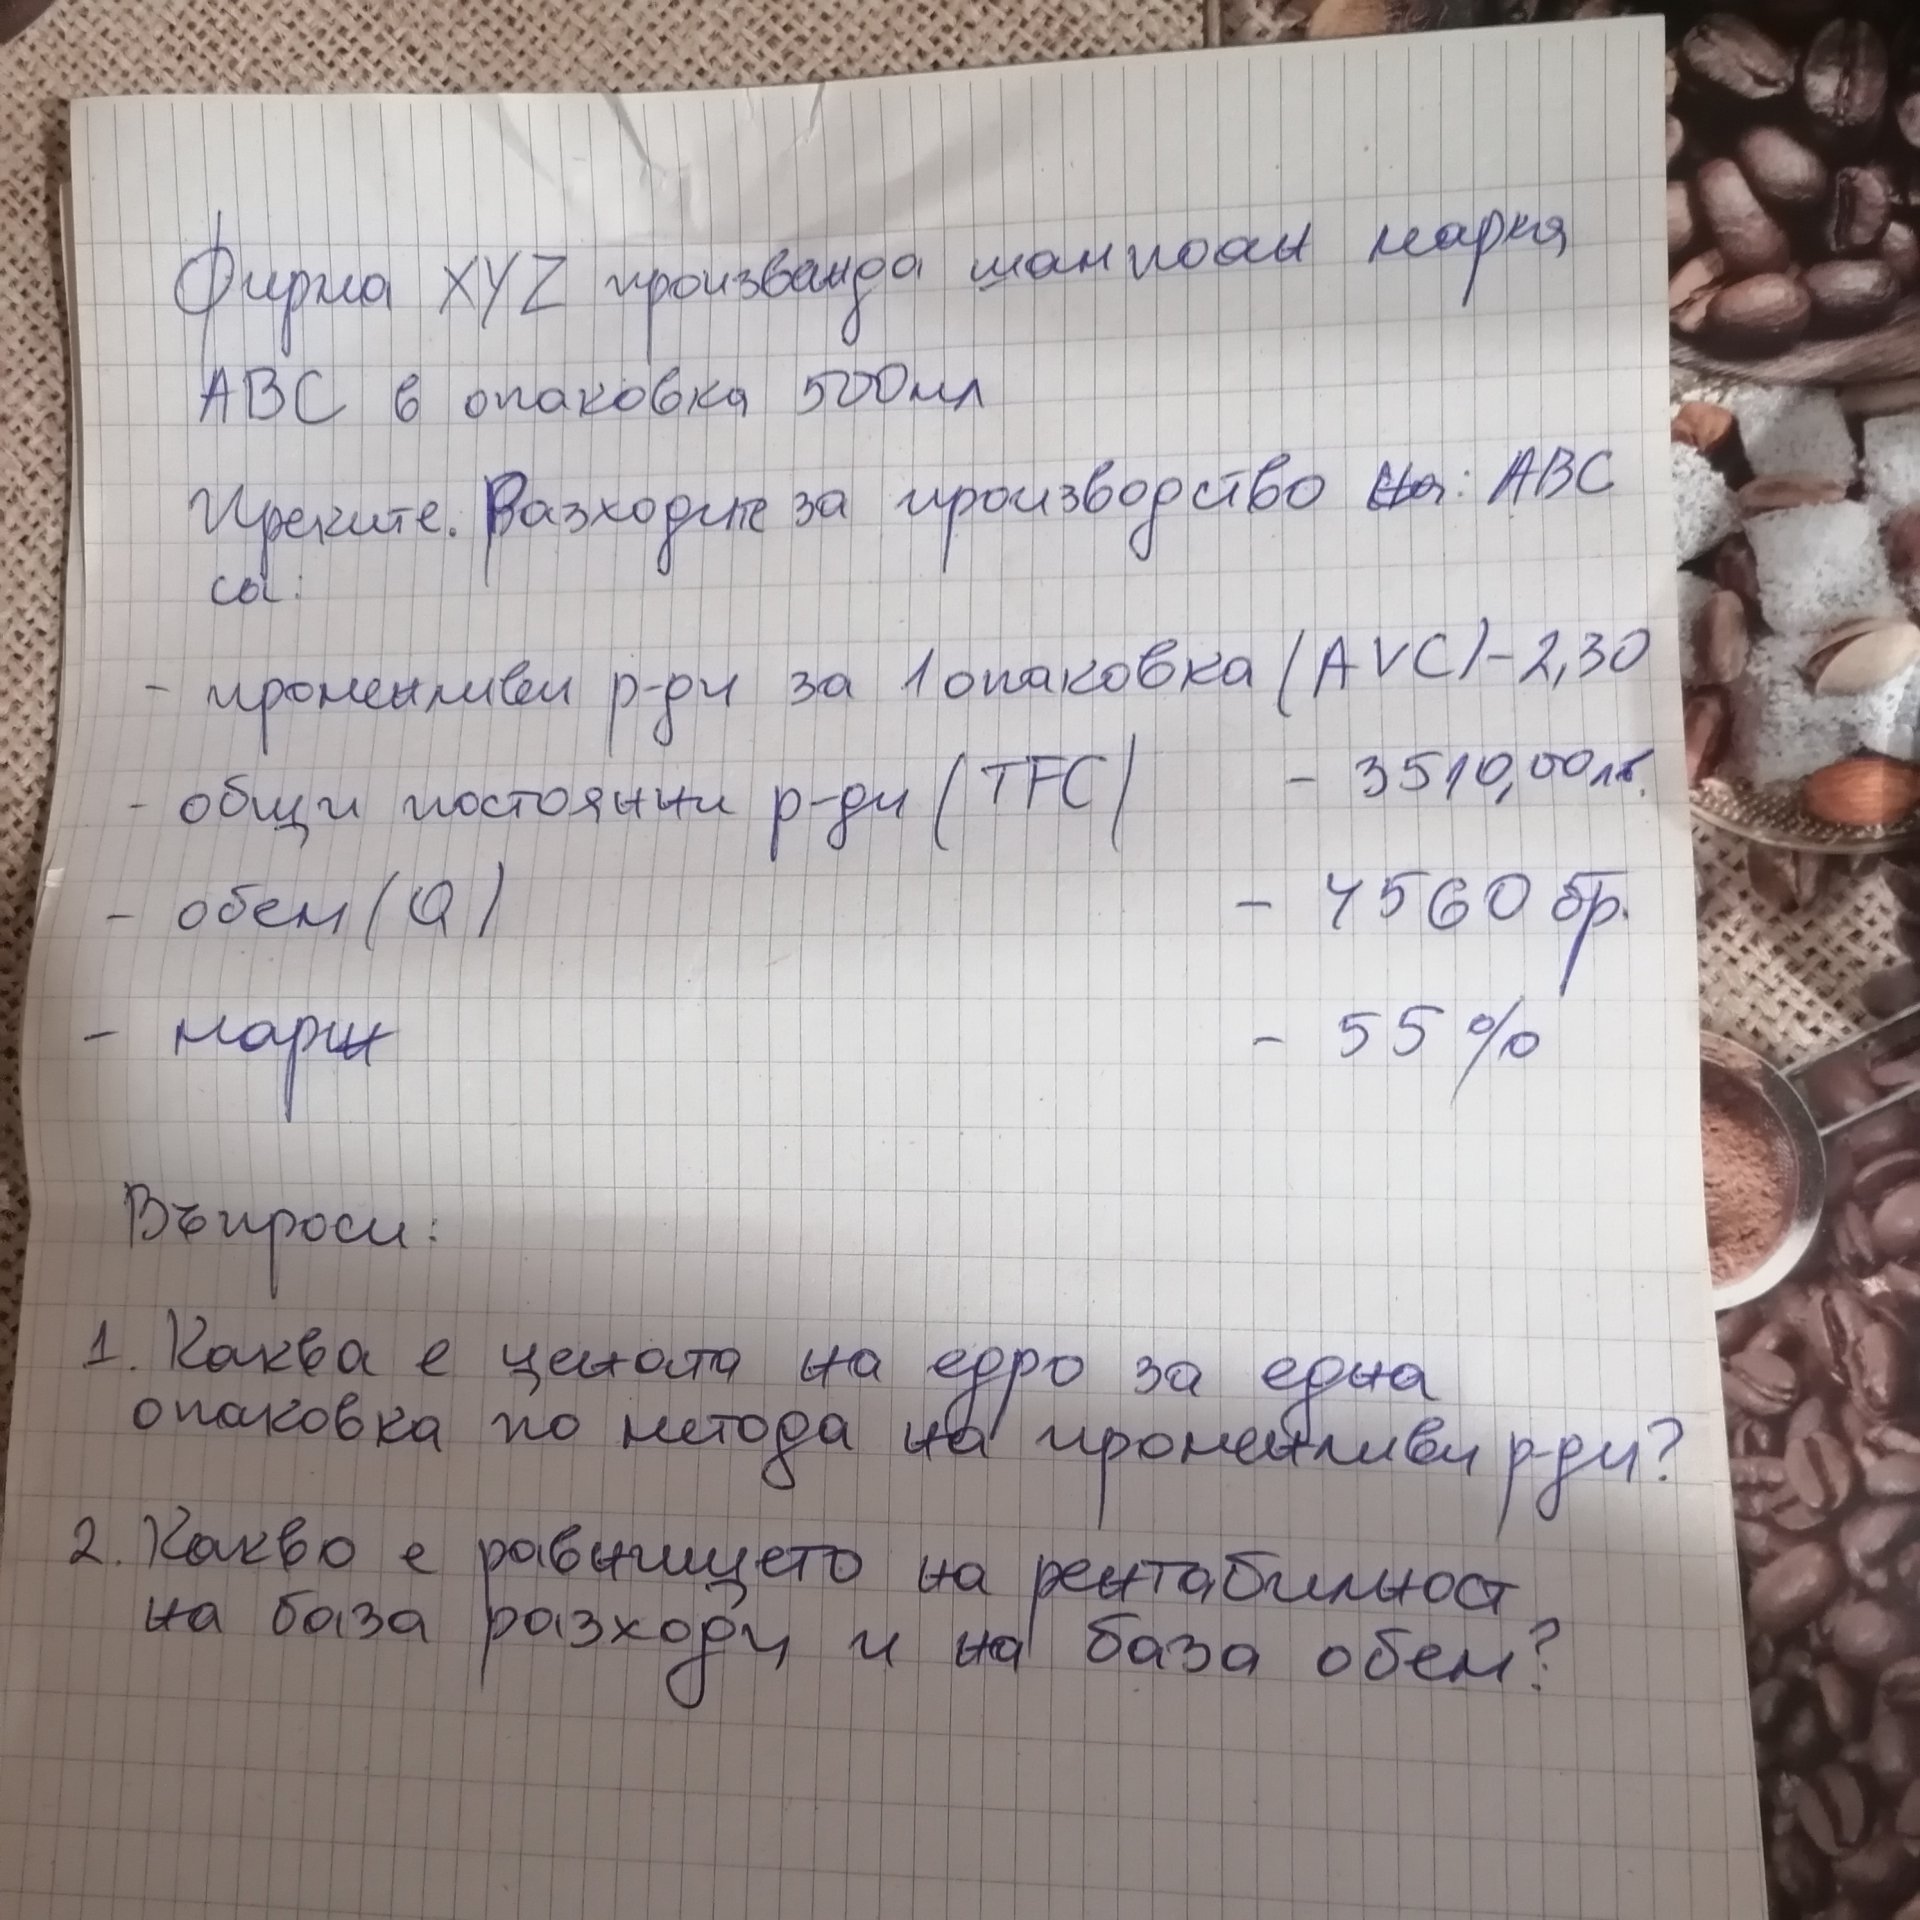 Фирма XYZ произважда шампоан марка
ABC в опаковка 500мл
Преките. Разходите за производство на: ABC
са:
- променливи р-ди за 1 опаковка (AVC) - 2,30
- общи постоянни р-ди (TFC) - 3510,00лв.
- обем (Q) - 4560 бр.
- марж - 55 %
Въпроси:
1. Каква е цената на едро за една
опаковка по метода на променливи р-ди?
2. Какво е равнището на рентабилност
на база разходи и на база обем?